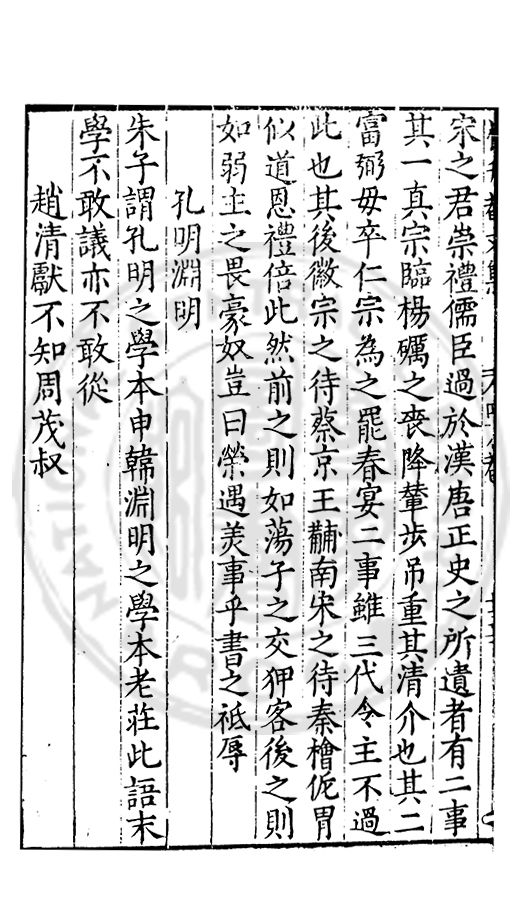 宋之君崇禮儒臣過於漢唐正史之所遺者有二事
其一真宗臨楊礪之喪降輦步吊重其清介也其二
富弼母卒仁宗為之罷春宴二事雖三代令主不過
此也其後徽宗之待蔡京王黼南宋之待秦檜侂胄
似道恩禮倍此然前之則如蕩子之交狎客後之則
如弱主之畏豪奴豈曰榮遇美事乎書之祗辱
孔明淵明
朱子謂孔明之學本申韓淵明之學本老莊此語末
學不敢議亦不敢從
趙清獻不知周茂叔